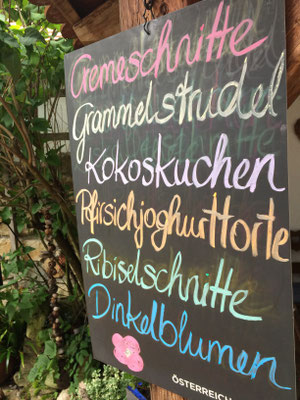 Cremeschnitte
Grammelstrudel
Kokoskuchen
Pfirsichjoghurttorte
Ribiselschnitte
Dinkelblumen
ÖSTERREICH